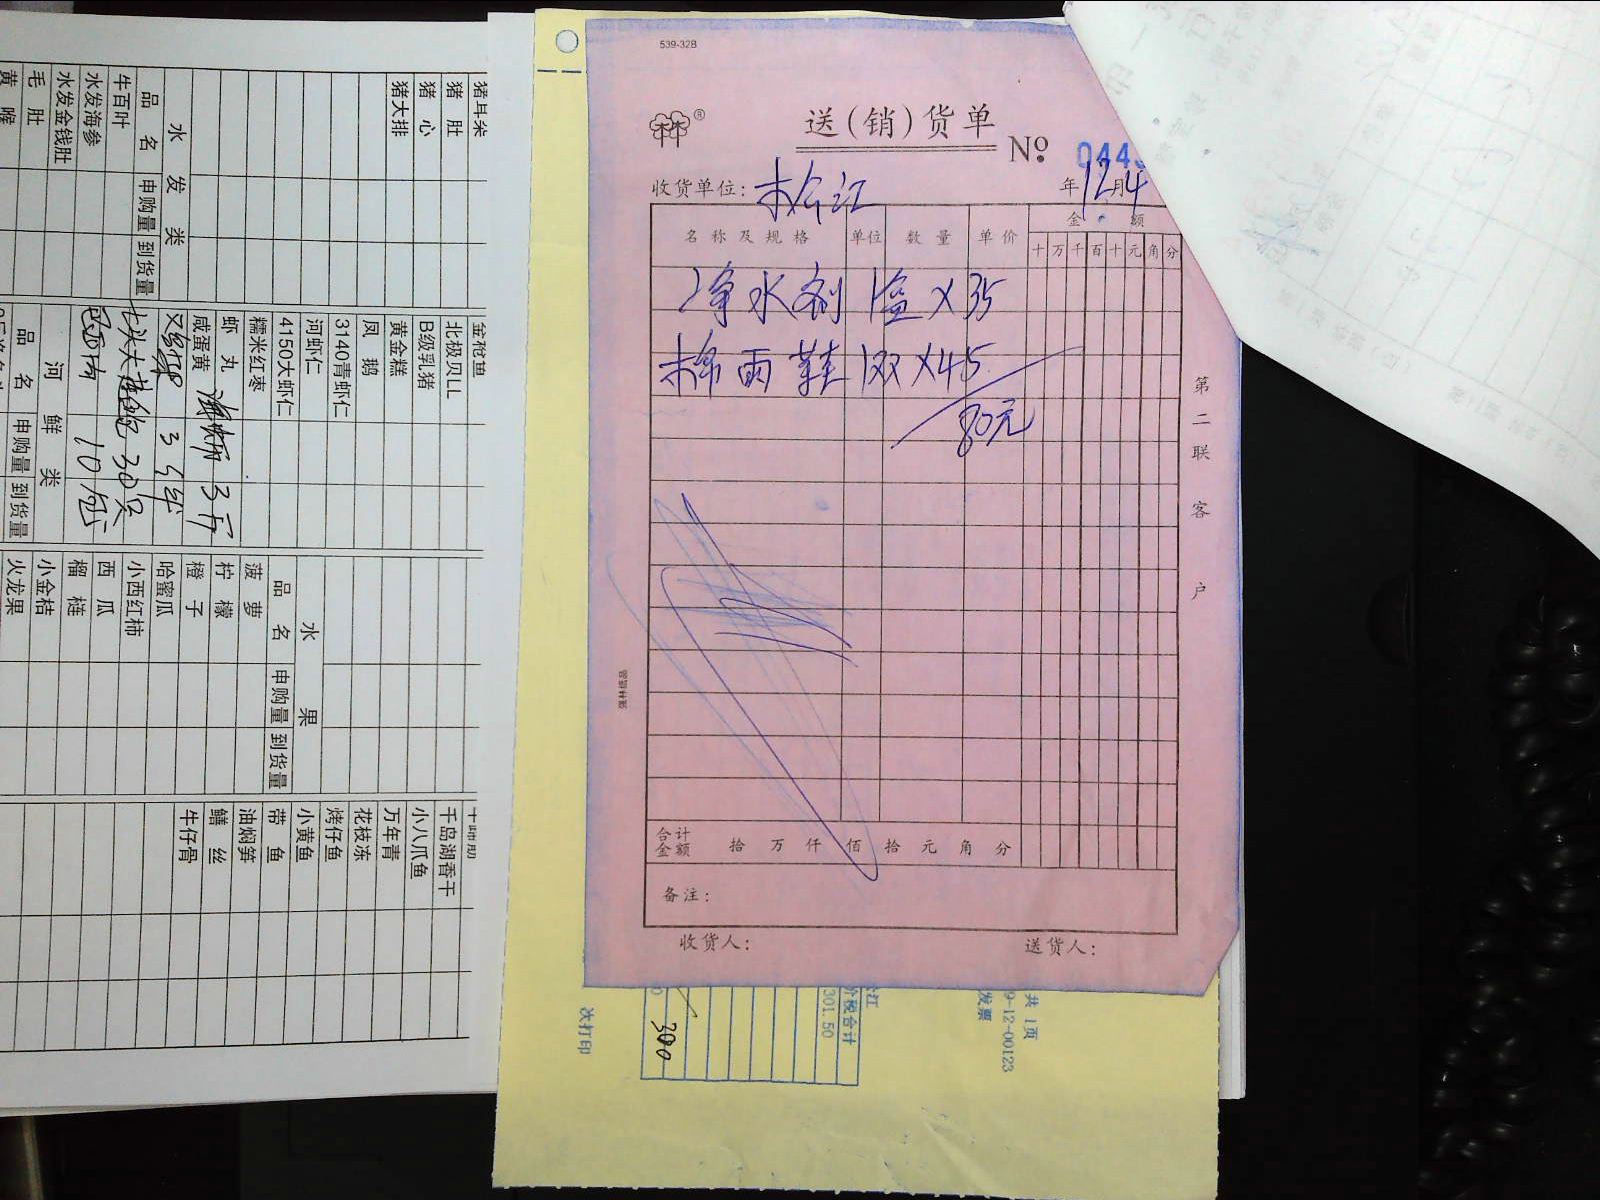 539-32B
送(销)货单
No. 044
收货单位: 松江
年12月4
名称及规格 单位 数量 单价 金额
十万千百十元角分
净水剂 1盒 X35
棉雨鞋 1双 X45
80元
合计金额 拾 万 仟 佰 拾 元 角 分
备注:
收货人: 送货人:
第二联 客户
猪肚
猪心
猪大排
水发类
品名 申购量 到货量
牛百叶
水发海参
水发金钱肚
毛肚
黄喉
北极贝LL
B级乳猪
黄金糕
凤鹅
3140青虾仁
河虾仁
4150大虾仁
糯米红枣
虾丸
咸蛋黄
3斤
30只
10包
河鲜类
品名 申购量 到货量
水果
品名 申购量 到货量
菠萝
柠檬
橙子
哈蜜瓜
小西红柿
西瓜
榴梿
小金桔
火龙果
千岛湖香干
小八爪鱼
万年青
花枝冻
烤仔鱼
小黄鱼
带鱼
油焖笋
鳝丝
牛仔骨
共 1页
9-12-00123
发票
江
价税合计
301.50
300
次打印